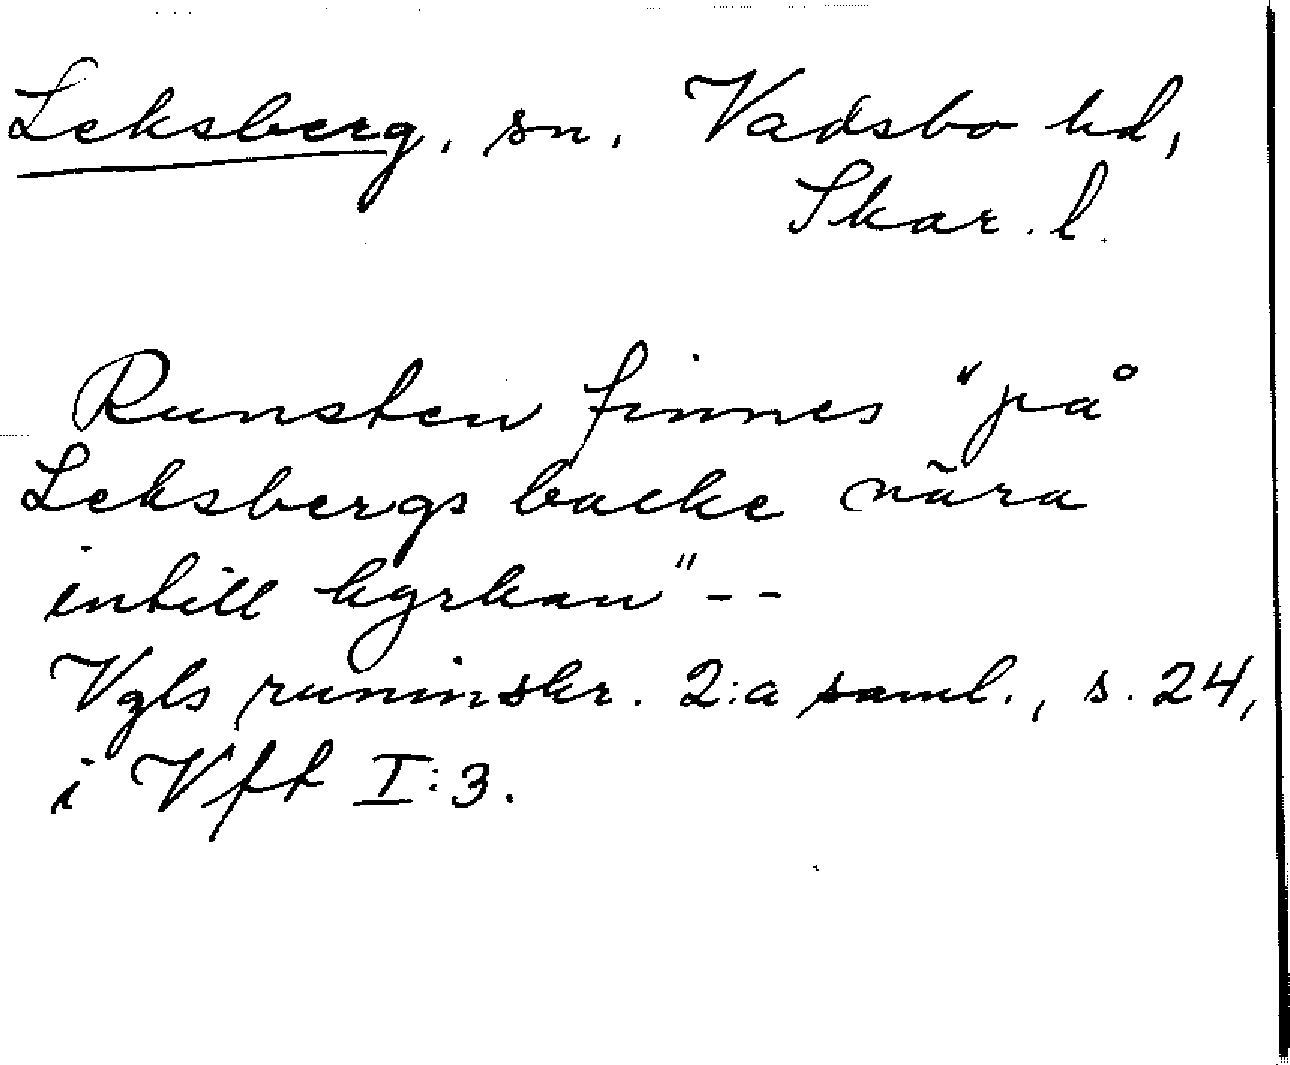 Leksberg, sn, Vadsbo hd,
Skar. l.
Runsten finnes "på
Leksbergs backe nära
intill kyrkan" - -
Vgls runinskr. 2:a saml., s. 24,
i Vft I:3.